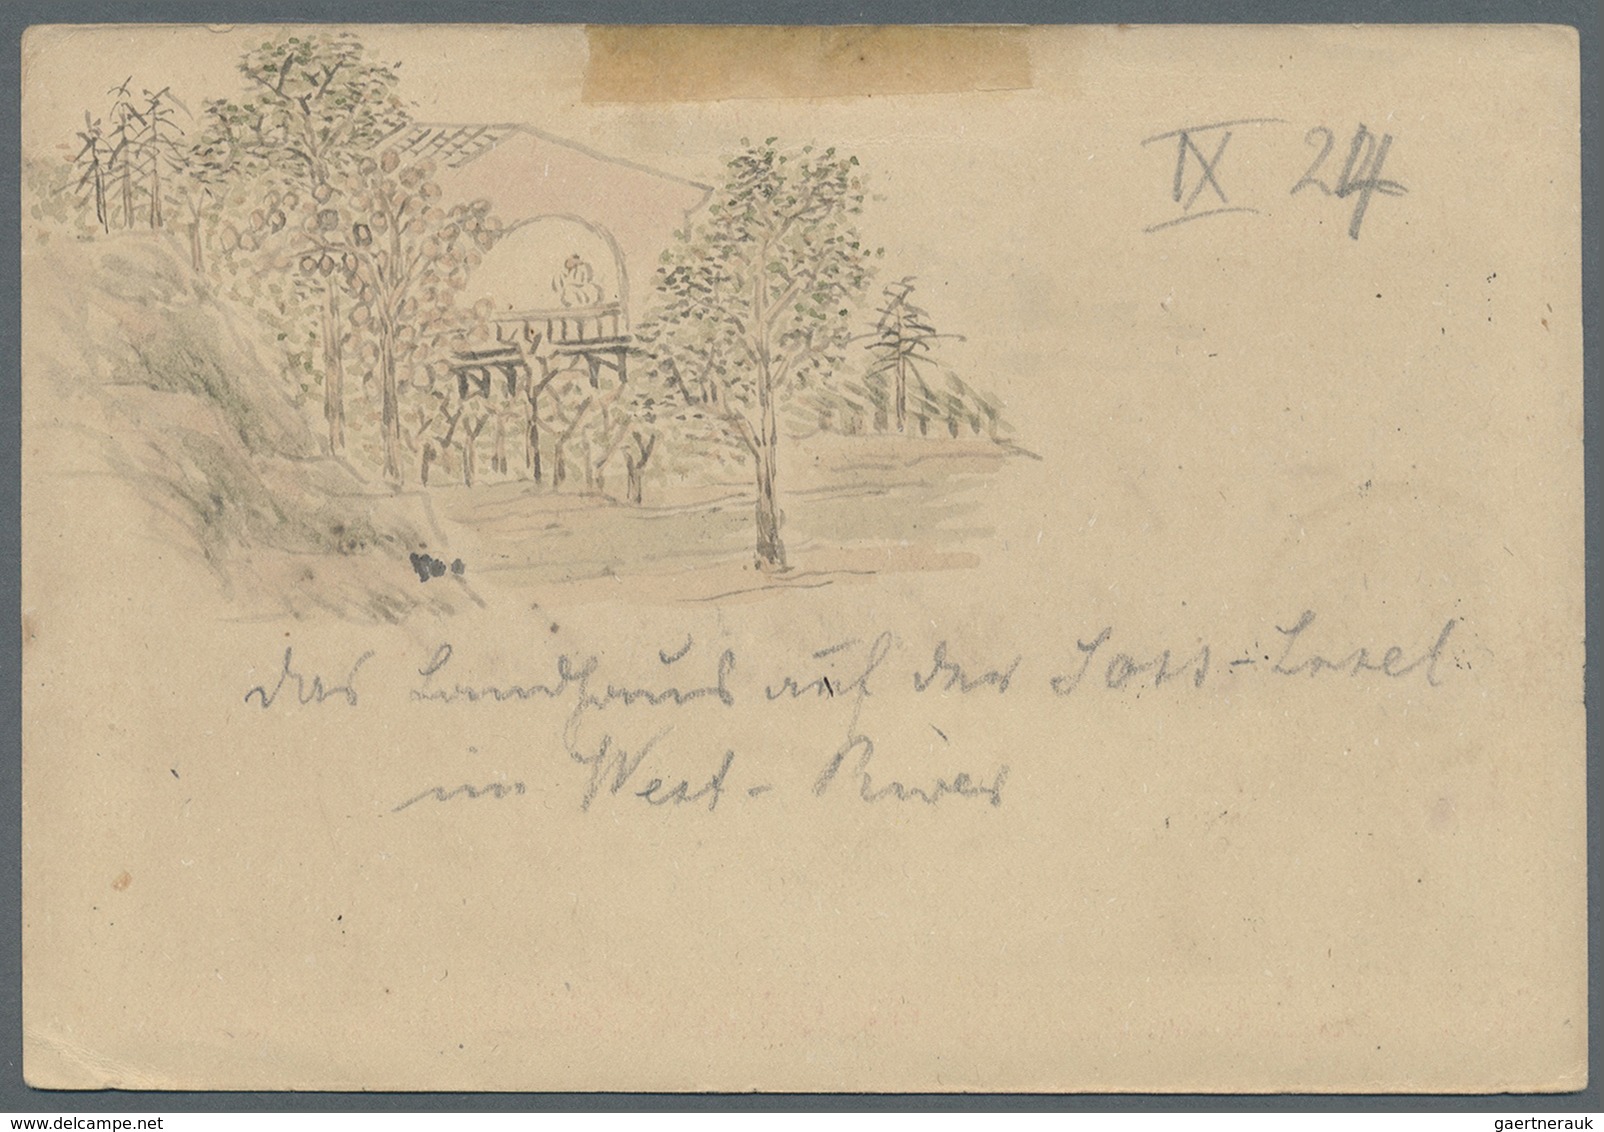 IX 24
das Landhaus auf der
im West-River
gaertnerauk